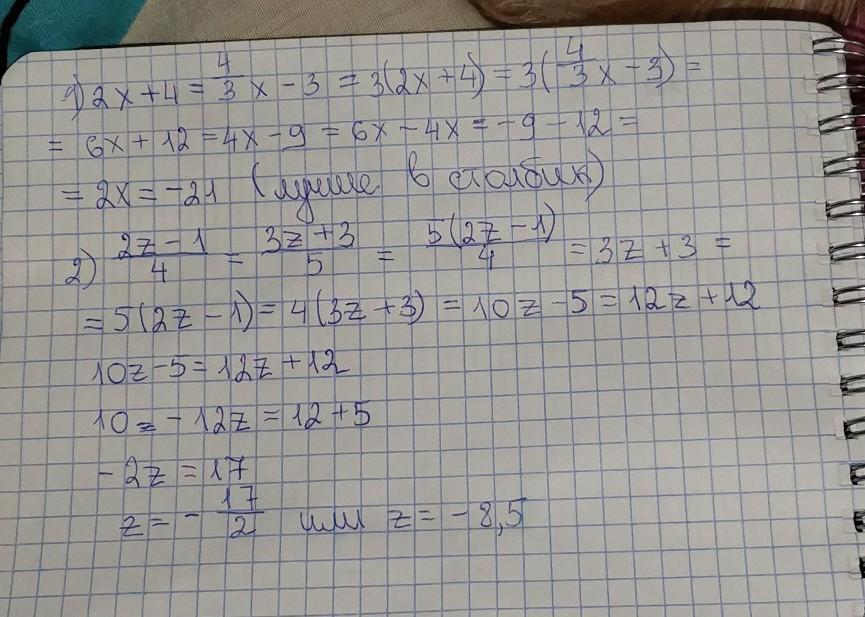 1) 2x + 4 = 4/3 x - 3 = 3(2x + 4) = 3(4/3 x - 3) =
= 6x + 12 = 4x - 9 = 6x - 4x = -9 - 12 =
= 2x = -21 (лучше в столбик)
2) (2z - 1)/4 = (3z + 3)/5 = 5(2z - 1)/4 = 3z + 3 =
= 5(2z - 1) = 4(3z + 3) = 10z - 5 = 12z + 12
10z - 5 = 12z + 12
10z - 12z = 12 + 5
-2z = 17
z = - 17/2 или z = -8,5